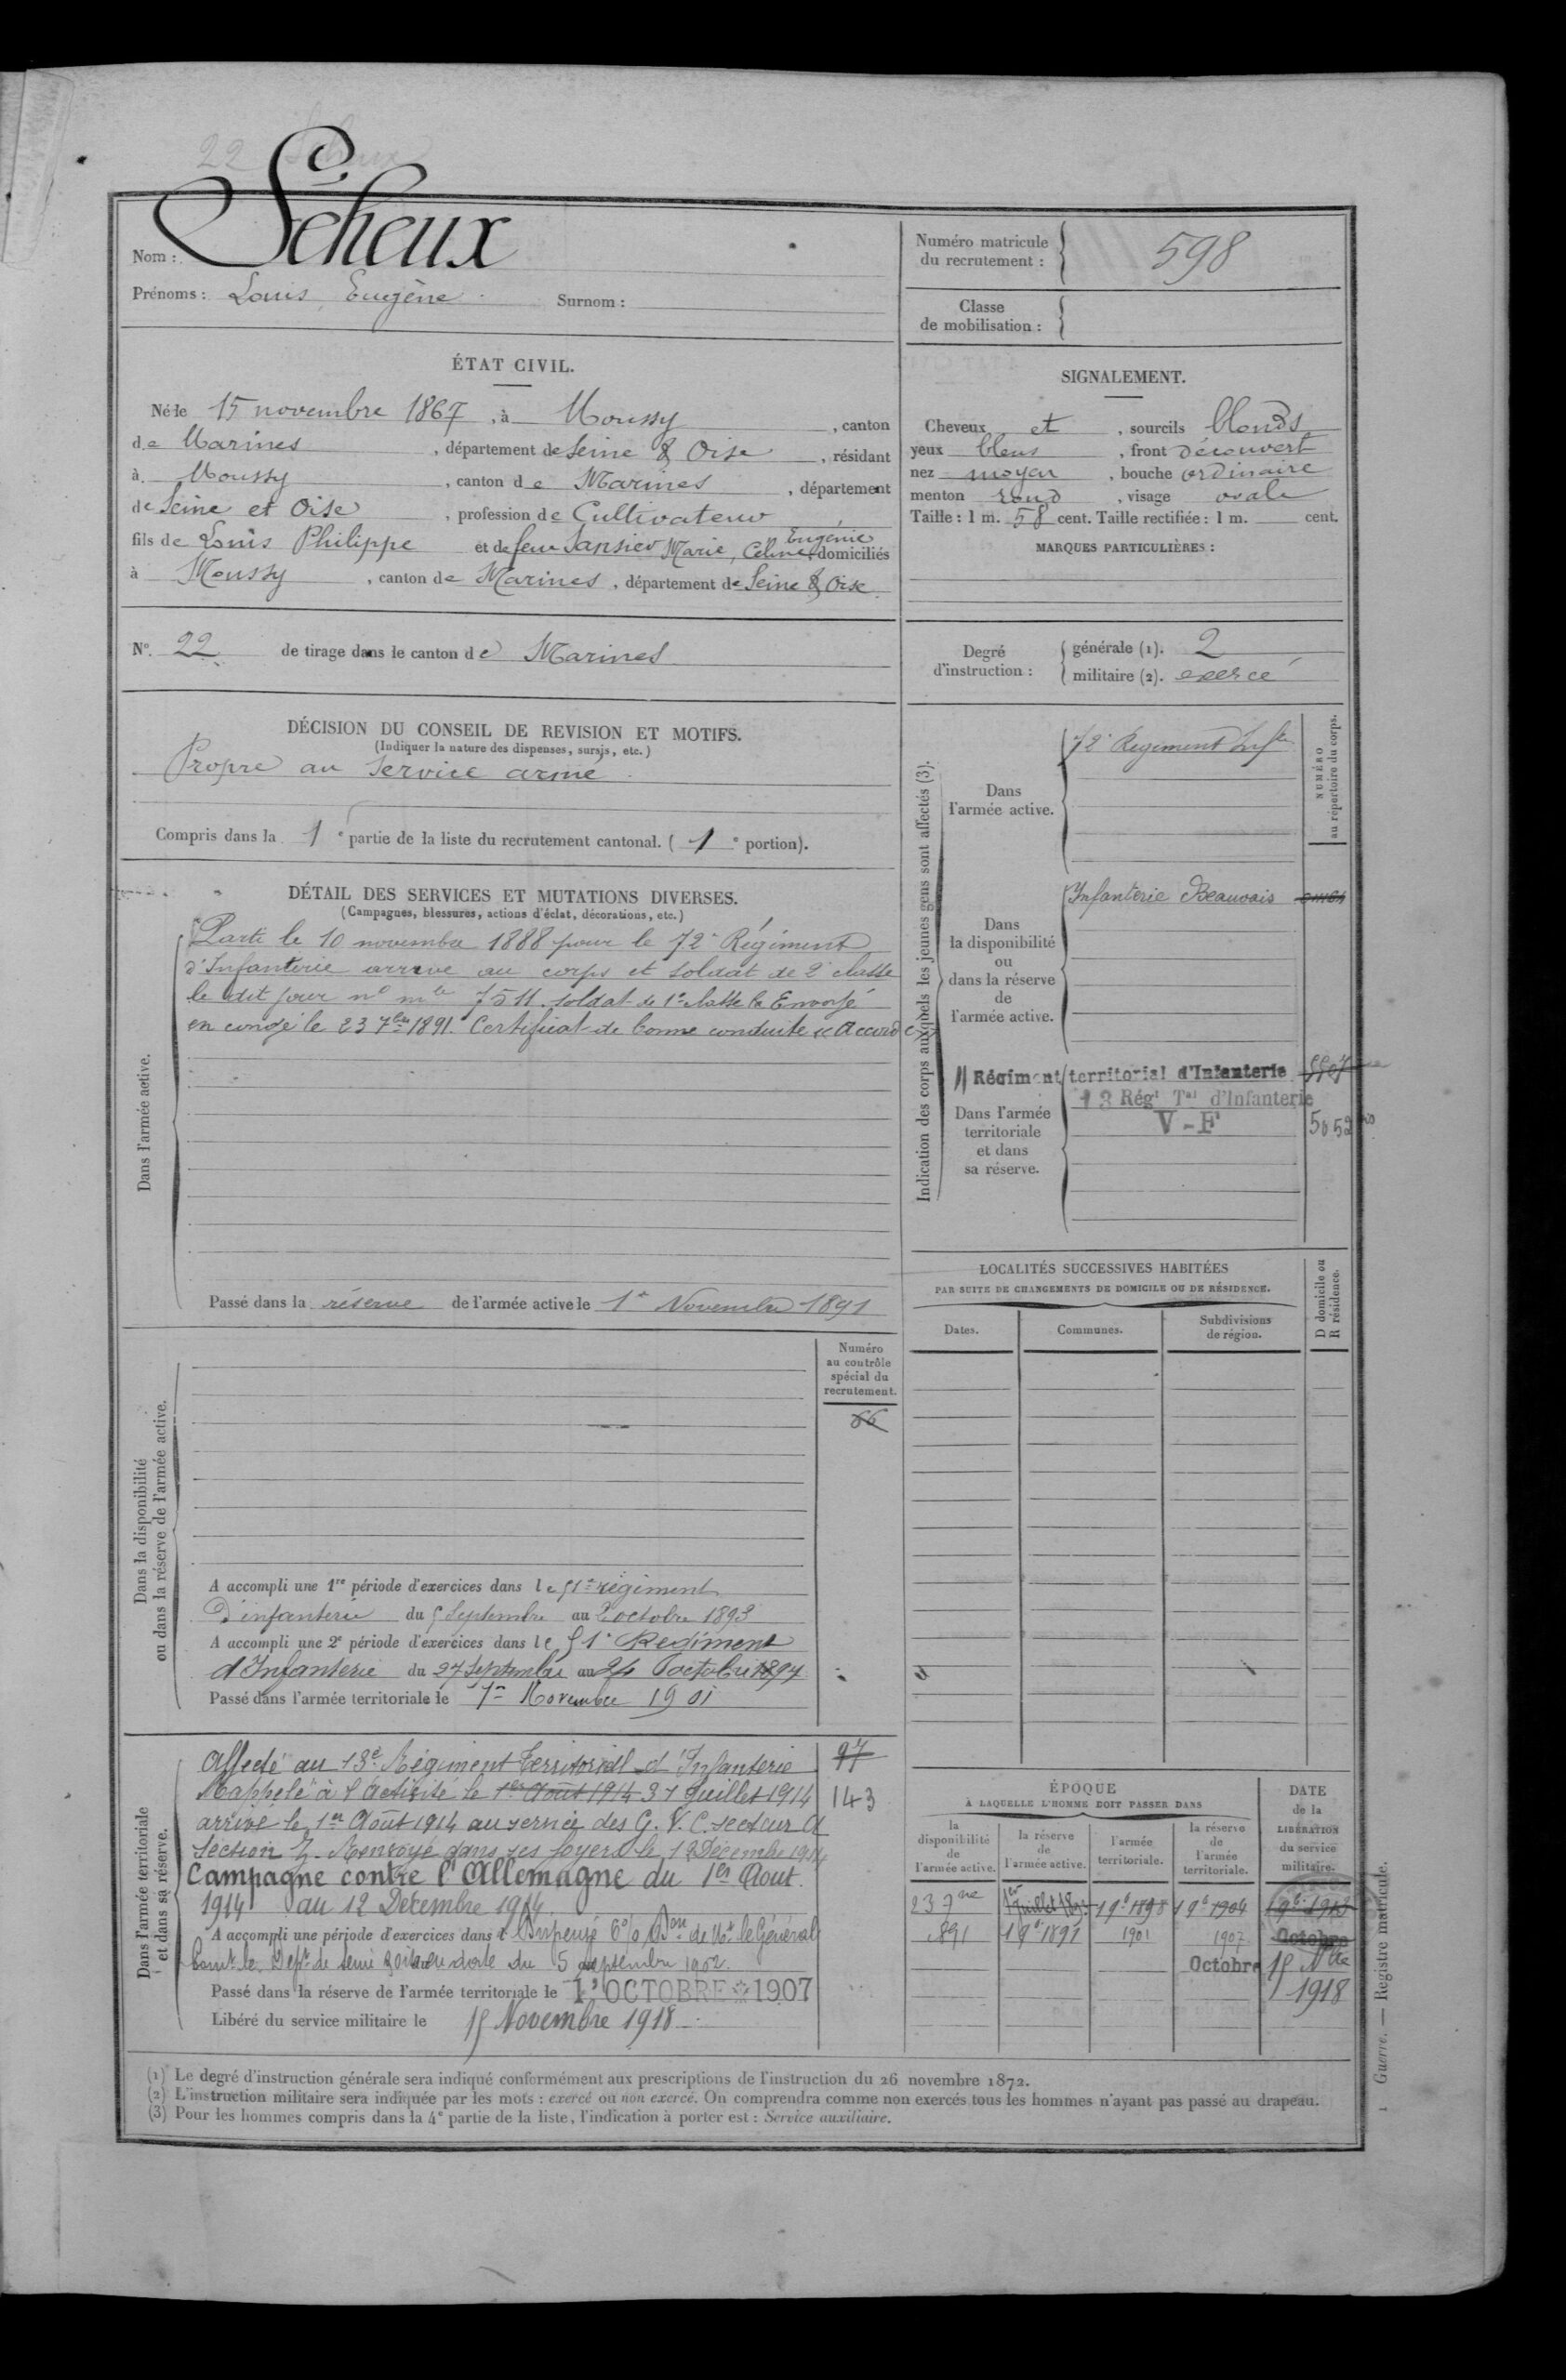 Nom : Scheux
Prénoms : Louis, Eugène Surnom :
Numéro matricule du recrutement : 598
Classe de mobilisation :
ÉTAT CIVIL.
Né le 15 novembre 1867, à Moussy, canton
de Marines, département de Seine & Oise, résidant
à Moussy, canton de Marines, département
de Seine et Oise, profession de Cultivateur
fils de Louis Philippe et de feue Marie, Céline, Eugénie domiciliés
à Moussy, canton de Marines, département de Seine & Oise.
SIGNALEMENT.
Cheveux et, sourcils blonds
yeux bleus, front découvert
nez moyen, bouche ordinaire
menton rond, visage ovale
Taille : 1 m. 58 cent. Taille rectifiée : 1 m. cent.
MARQUES PARTICULIÈRES :
N° 22 de tirage dans le canton de Marines
Degré d'instruction :
générale (1). 2
militaire (2). exercé
DÉCISION DU CONSEIL DE REVISION ET MOTIFS.
(Indiquer la nature des dispenses, sursis, etc.)
Propre au service armé
Compris dans la 1e partie de la liste du recrutement cantonal. (1e portion).
DÉTAIL DES SERVICES ET MUTATIONS DIVERSES.
(Campagnes, blessures, actions d'éclat, décorations, etc.)
Dans l'armée active.
Parti le 10 novembre 1888 pour le 72e Régiment
d'Infanterie arrivé au corps et soldat de 2e classe
le dit jour n° mle 7511. soldat de 1e classe le Envoyé
en congé le 23 7bre 1891. Certificat de bonne conduite « Accordé »
Passé dans la réserve de l'armée active le 1er Novembre 1891
Indication des corps auxquels les jeunes gens sont affectés (3).
NUMÉRO au répertoire du corps.
Dans l'armée active.
72e Regiment Infie
Dans la disponibilité ou dans la réserve de l'armée active.
Infanterie Beauvais
Dans l'armée territoriale et dans sa réserve.
11 Régiment territorial d'Infanterie
13 Régt Tal d'Infanterie
V-F
5052
LOCALITÉS SUCCESSIVES HABITÉES
PAR SUITE DE CHANGEMENTS DE DOMICILE OU DE RÉSIDENCE.
Dates. Communes. Subdivisions de région. D domicile ou R résidence.
Dans la disponibilité ou dans la réserve de l'armée active.
Numéro au contrôle spécial du recrutement.
66
A accompli une 1re période d'exercices dans le 51e régiment
D'infanterie du 5 Septembre au 2 octobre 1893
A accompli une 2e période d'exercices dans le 51e Regiment
d'Infanterie du 27 Septembre au 24 octobre 1897
Passé dans l'armée territoriale le 1er Novembre 1901
Dans l'armée territoriale et dans sa réserve.
Affecté au 13e Régiment Territorial d'Infanterie 97
Rappelé à l'activité le 1er Août 1914 31 Juillet 1914 143
arrivé le 1er Août 1914 au service des G.V.C. secteur A
Section Z. Renvoyé dans ses foyers le 12 Décembre 1914
Campagne contre l'Allemagne du 1er Aout
1914 au 12 Décembre 1914.
A accompli une période d'exercices dans l Dispensé 6% Don de Mr le Général
Comt le Dept de Seine & Oise en date du 5 septembre 1902.
Passé dans la réserve de l'armée territoriale le 1er OCTOBRE 1907
Libéré du service militaire le 15 Novembre 1918
ÉPOQUE À LAQUELLE L'HOMME DOIT PASSER DANS
la disponibilité de l'armée active. la réserve de l'armée active. l'armée territoriale. la réserve de l'armée territoriale.
DATE de la LIBÉRATION du service militaire.
23 7bre 1er Juillet 189 1 9b 1898 1 9b 1904 1 9b 1913
1891 1 9b 1891 1901 1907 Octobre
Octobre 15 Nbre
1918
(1) Le degré d'instruction générale sera indiqué conformément aux prescriptions de l'instruction du 26 novembre 1872.
(2) L'instruction militaire sera indiquée par les mots : exercé ou non exercé. On comprendra comme non exercés tous les hommes n'ayant pas passé au drapeau.
(3) Pour les hommes compris dans la 4e partie de la liste, l'indication à porter est : Service auxiliaire.
Guerre. — Registre matricule.